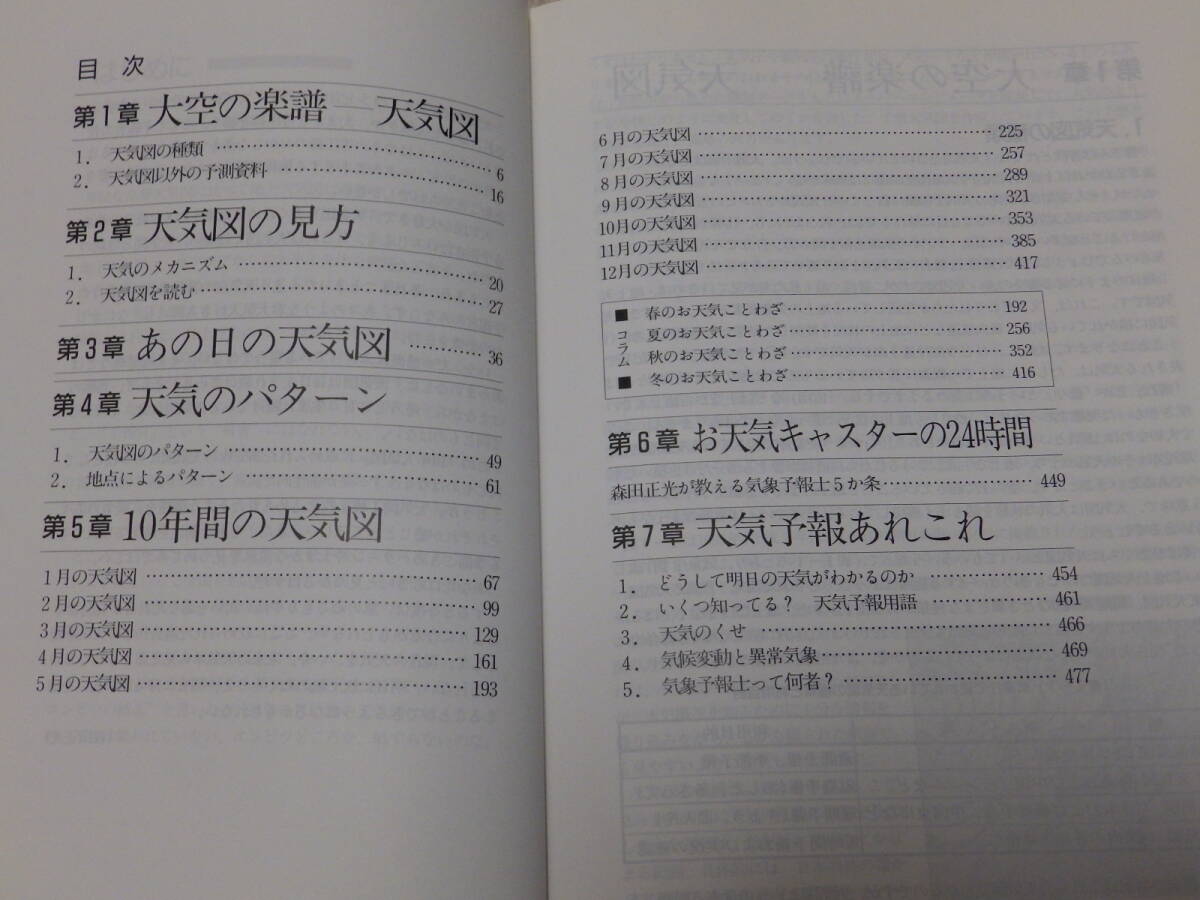 目 次
第1章 大空の楽譜 天気図
1. 天気図の種類 …… 6
2. 天気図以外の予測資料 …… 16
第2章 天気図の見方
1. 天気のメカニズム …… 20
2. 天気図を読む …… 27
第3章 あの日の天気図 …… 36
第4章 天気のパターン
1. 天気図のパターン …… 49
2. 地点によるパターン …… 61
第5章 10年間の天気図
1月の天気図 …… 67
2月の天気図 …… 99
3月の天気図 …… 129
4月の天気図 …… 161
5月の天気図 …… 193
6月の天気図 …… 225
7月の天気図 …… 257
8月の天気図 …… 289
9月の天気図 …… 321
10月の天気図 …… 353
11月の天気図 …… 385
12月の天気図 …… 417
■コラム■
春のお天気ことわざ …… 192
夏のお天気ことわざ …… 256
秋のお天気ことわざ …… 352
冬のお天気ことわざ …… 416
第6章 お天気キャスターの24時間
森田正光が教える気象予報士5か条 …… 449
第7章 天気予報あれこれ
1. どうして明日の天気がわかるのか …… 454
2. いくつ知ってる? 天気予報用語 …… 461
3. 天気のくせ …… 466
4. 気候変動と異常気象 …… 469
5. 気象予報士って何者? …… 477